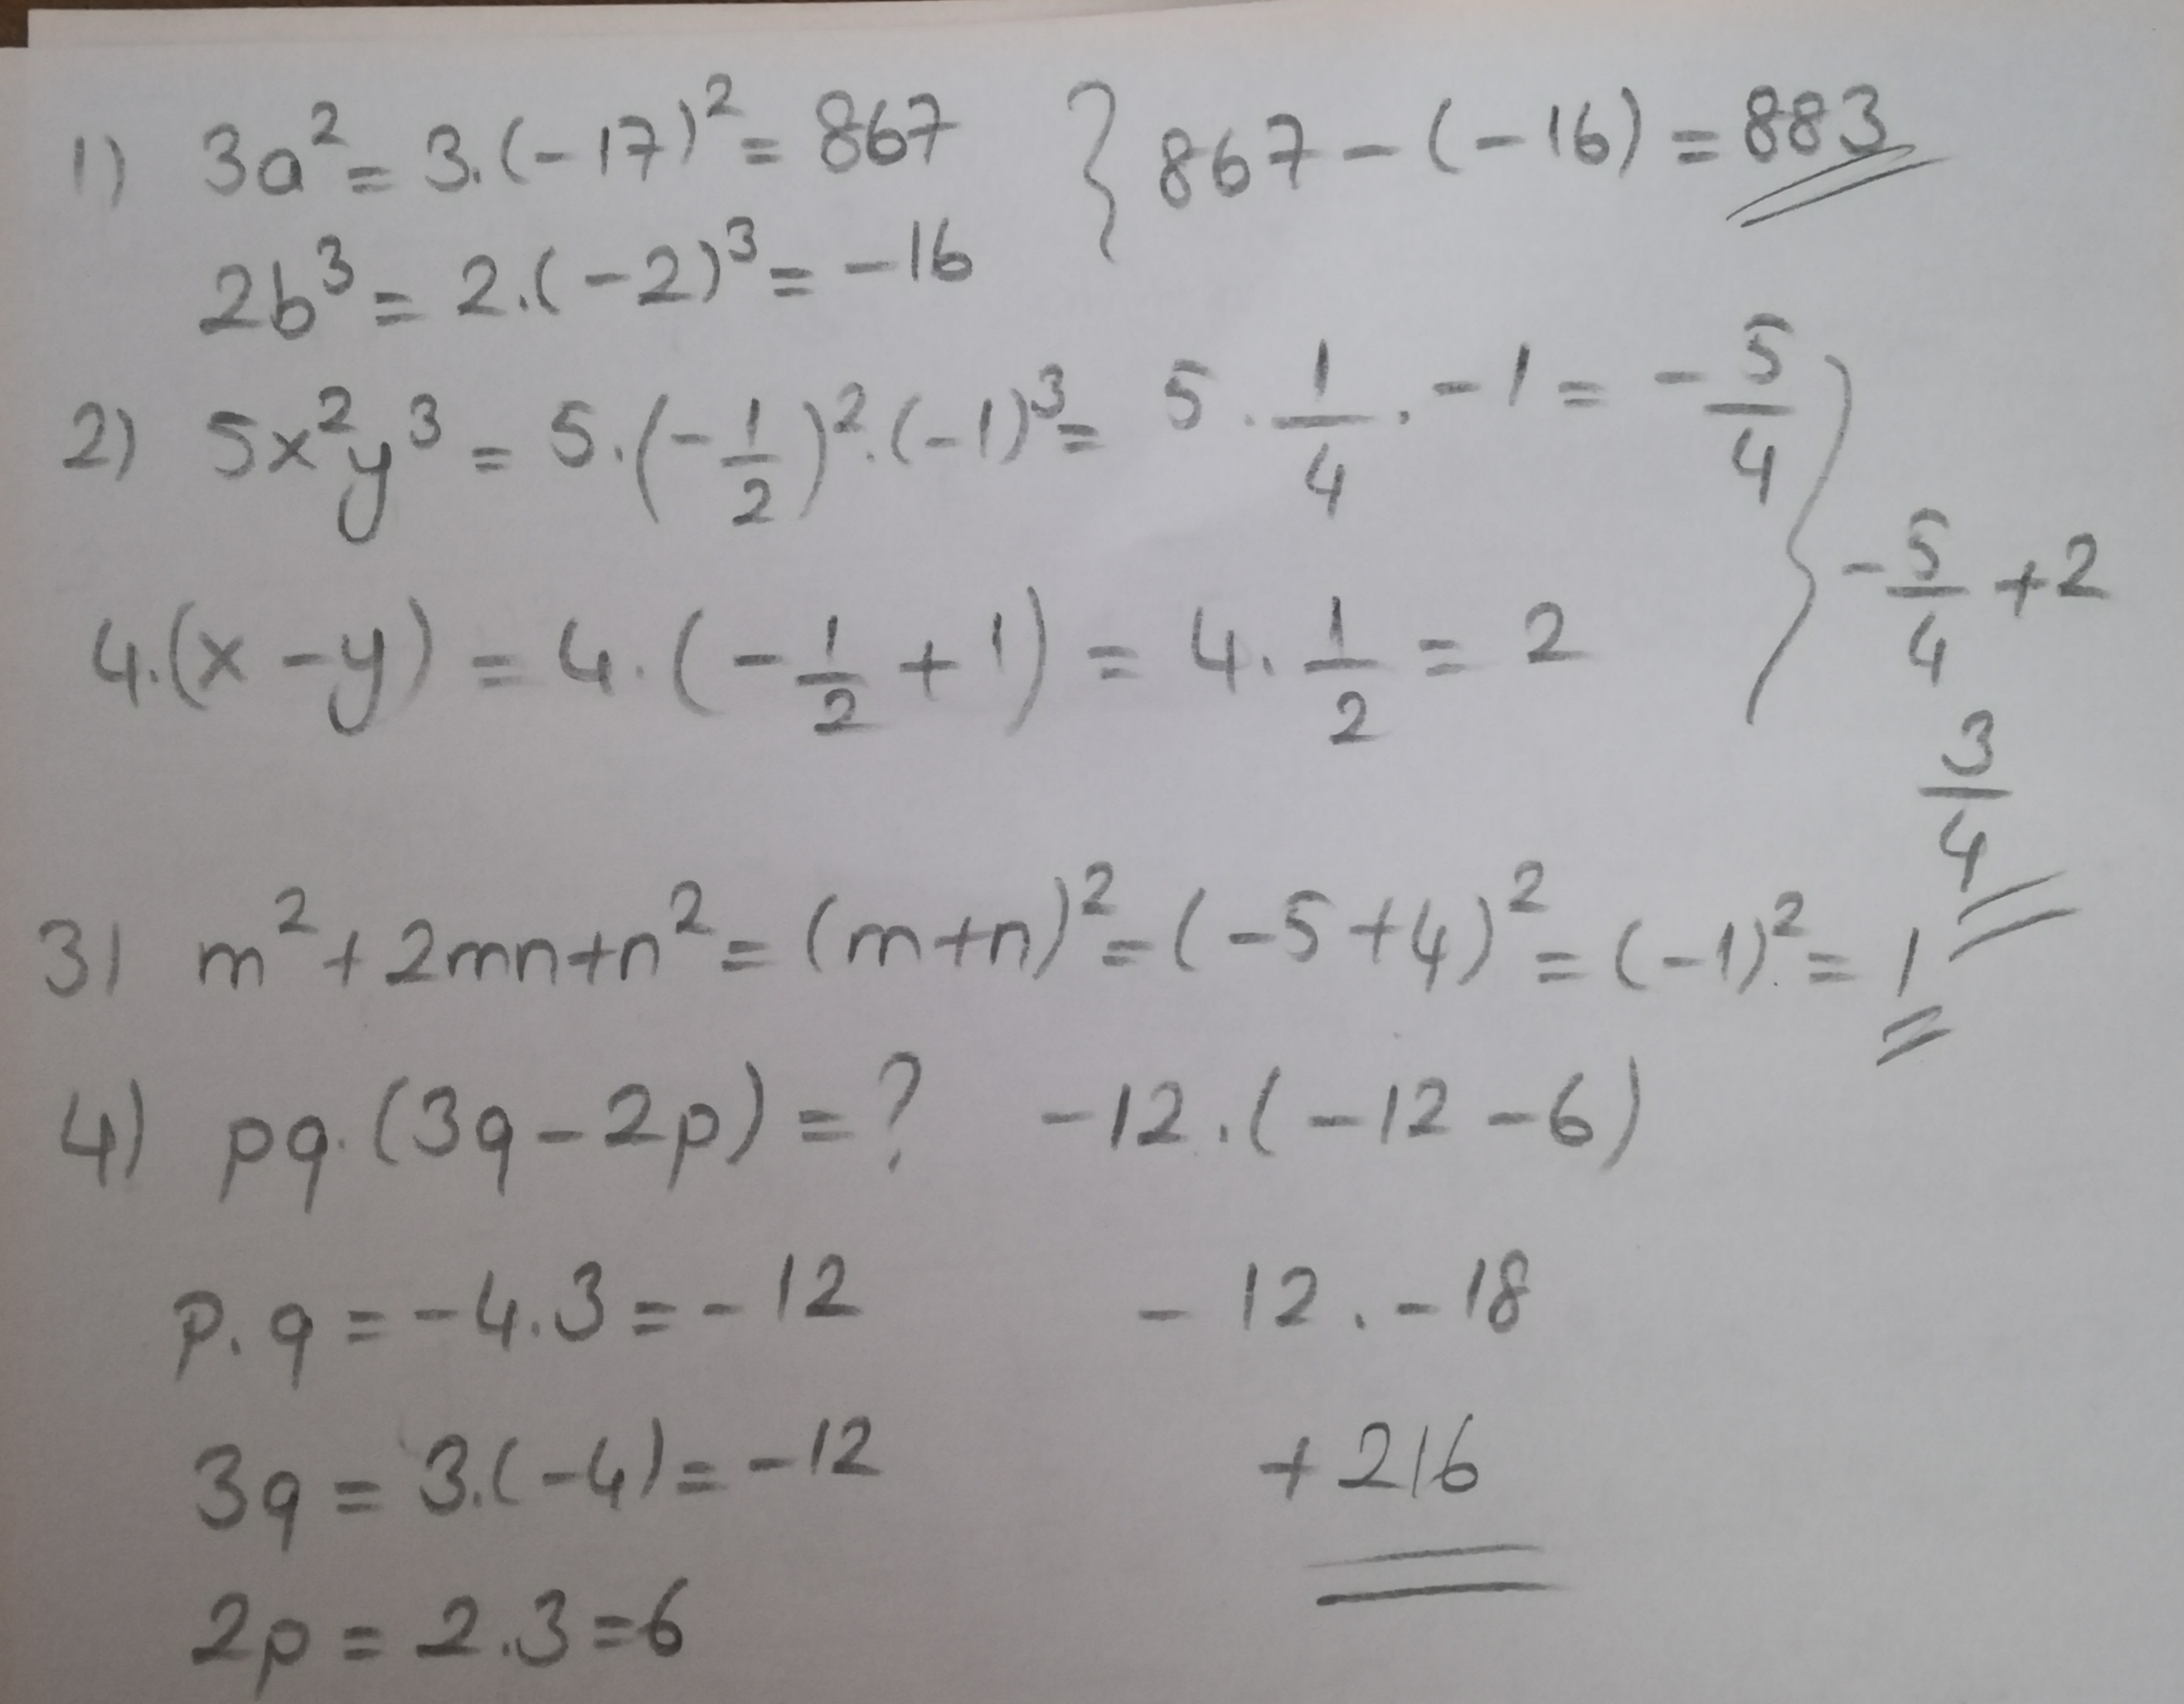 1) 3a² = 3.(-17)² = 867 } 867 - (-16) = 883
2b³ = 2.(-2)³ = -16
2) 5x²y³ = 5.(-1/2)².(-1)³ = 5 . 1/4 . -1 = -5/4
4.(x-y) = 4.(-1/2 + 1) = 4. 1/2 = 2 } -5/4 + 2
3/4
3) m² + 2mn + n² = (m+n)² = (-5+4)² = (-1)² = 1
4) pq.(3q-2p) = ? -12.(-12-6)
p.q = -4.3 = -12 -12 . -18
3q = 3.(-4) = -12 +216
2p = 2.3 = 6